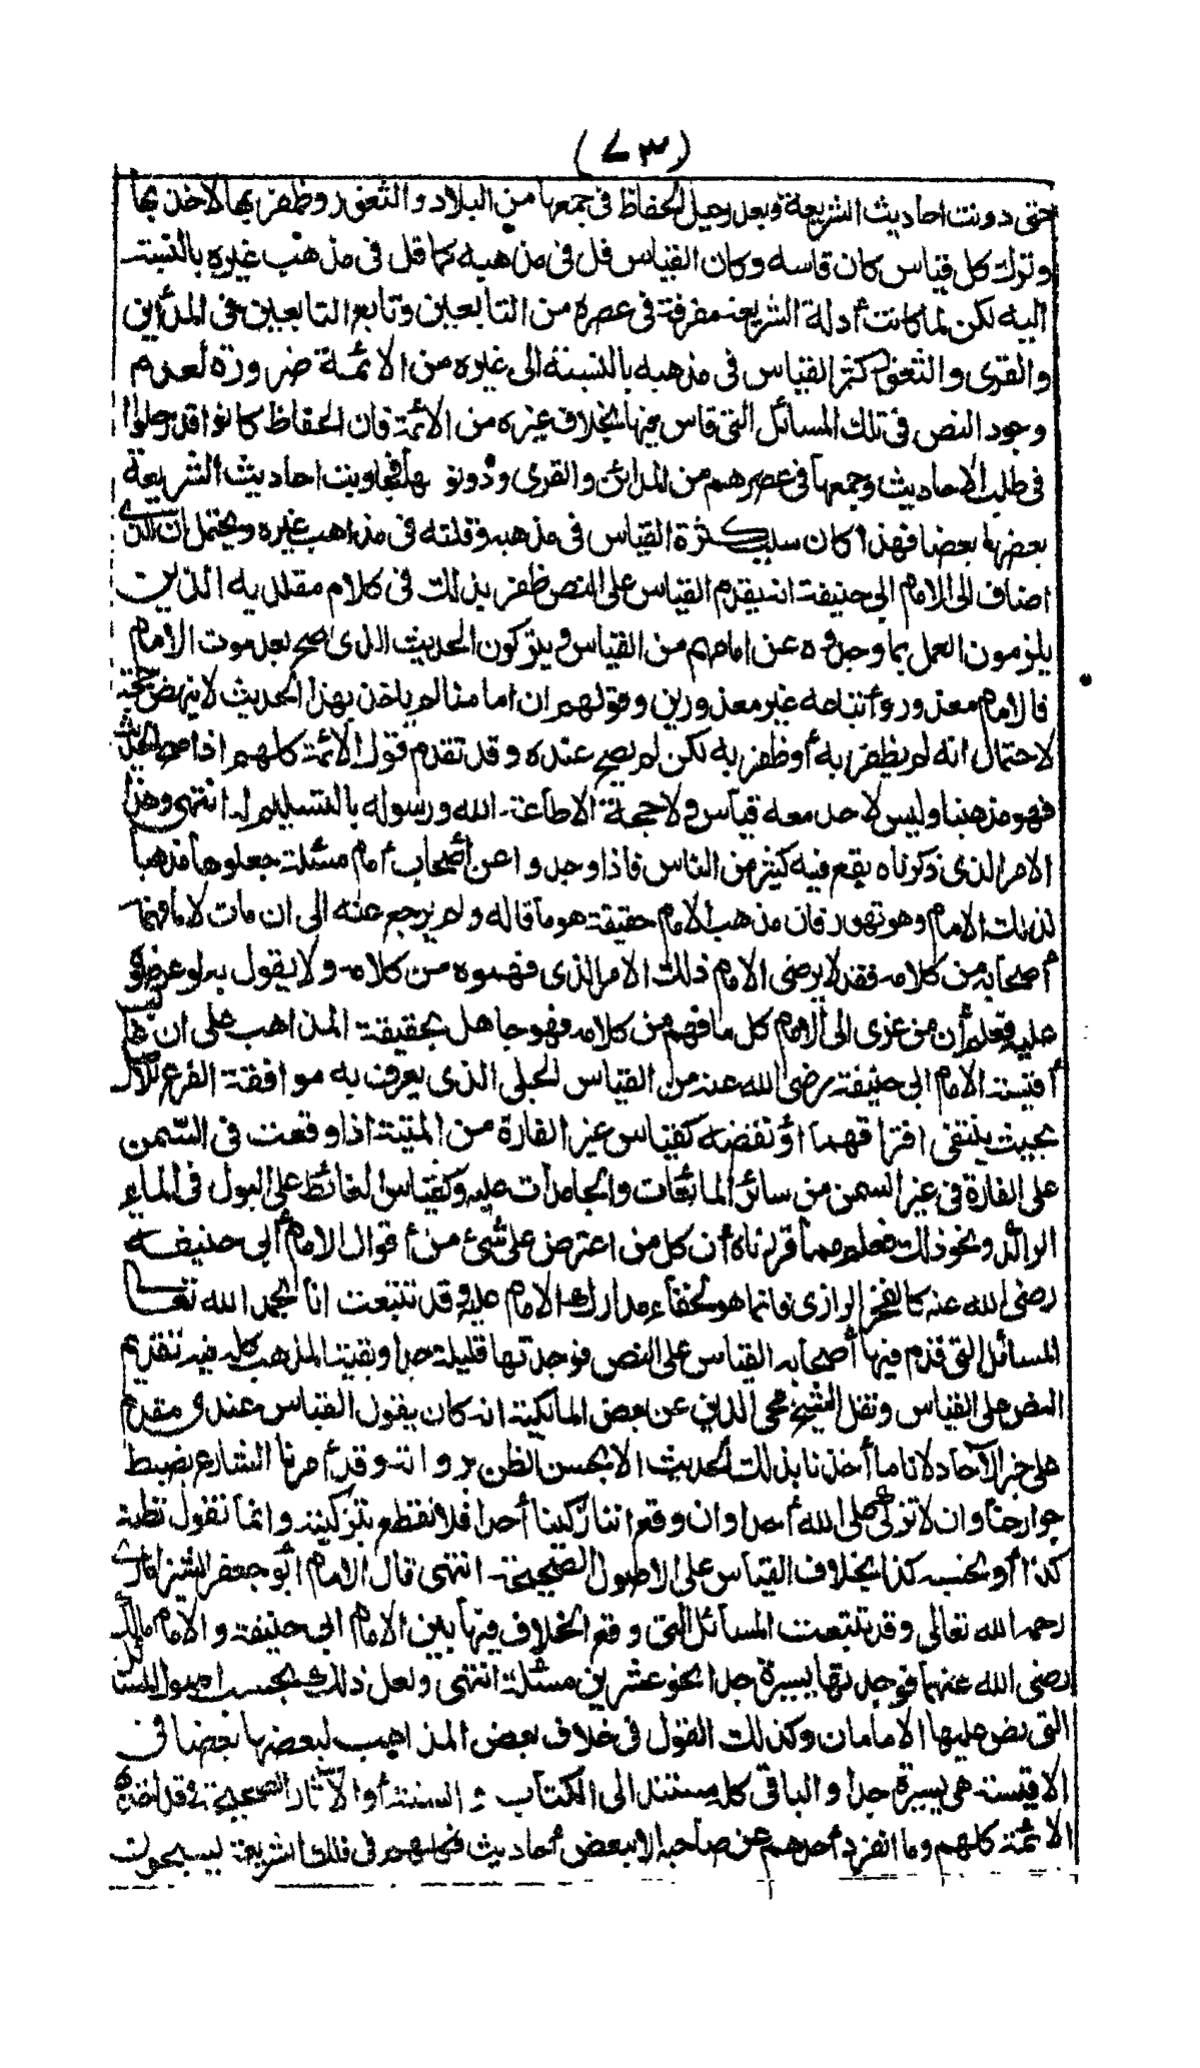 (٧٣)
حتى دونت احاديث الشريعة وبعد رحيل الحفاظ فى جمعها من البلاد والثغور وظفر بها لأخذ بها
وترك كل قياس كان قاسه وكان القياس قل فى مذهبه كما قل فى مذهب غيره بالنسبة
اليه لكن لما كانت أدلة الشريعة مفرقة فى عصره من التابعين وتابع التابعين فى المدأين
والقرى والثغور كثر القياس فى مذهبه بالنسبة الى غيره من الائمة ضرورة لعدم
وجود النص فى تلك المسائل التى قاس فيها بخلاف غيره من الائمة فان الحفاظ كانوا قد رحلوا
فى طلب الاحاديث وجمعها فى عصرهم من المدائن والقرى ودونوها فجاوبت احاديث الشريعة
بعضها بعضا فهذا كان سبب كثرة القياس فى مذهبه وقلته فى مذاهب غيره ويحتمل ان الذى
اضاف الى الامام ابى حنيفة انه يقدم القياس على النص ظفر بذلك فى كلام مقلديه الذين
يلزمون العمل بما وجدوه عن امامهم من القياس ويتركون الحديث الذى صح بعد موت الامام
فالامام معذور وأتباعه غير معذورين وقولهم ان امامنا لم ياخذ بهذا الحديث لا ينهض حجة
لاحتمال انه لم يظفر به أو ظفر به لكن لم يصح عنده وقد تقدم قول الائمة كلهم اذا صح الحديث
فهو مذهبنا وليس لاحد معه قياس ولا حجة الا طاعة الله ورسوله بالتسليم له انتهى وهذا
الامر الذى ذكرناه يقع فيه كثير من الناس فاذا وجدوا عن أصحاب امام مسئلة جعلوها مذهبا
لذلك الامام وهو تهور فان مذهب الامام حقيقة هو ما قاله ولم يرجع عنه الى ان مات لا ما فهمه
أصحابه من كلامه فقد لا يرضى الامام ذلك الامر الذى فهموه من كلامه ولا يقول به لو عرضوه
عليه فعلم أن من عزى الى الامام كل ما فهم من كلامه فهو جاهل بحقيقة المذاهب على ان غالب
أقيسة الامام ابى حنيفة رضى الله عنه من القياس الجلى الذى يعرف به موافقة الفرع للاصل
بحيث ينتفى افتراقهما أو نقضه كقياس غير الفارة من الميتة اذا وقعت فى السمن
على الفارة فى غير السمن من سائر المائعات والجامدات عليه وكقياس الغائط على البول فى الماء
الراكد ونحو ذلك فعلم مما قررناه أن كل من اعترض على شئ من أقوال الامام أبى حنيفه
رضى الله عنه كالفخر الرازى فانما هو لخفاء مدارك الامام عليه وقد تتبعت انا بحمد الله تعالى
المسائل التى قدم فيها أصحابه القياس على النص فوجدتها قليلة جدا وبقية المذهب كله فيه تقديم
النص على القياس ونقل الشيخ محى الدين عن بعض المالكية انه كان يقول القياس عندى مقدم
على خبر الآحاد لانا ما أخذنا بذلك الحديث الا بحسن الظن برواته وقد أمرنا الشارع بضبط
جوارحنا وان لا نزكى على الله أحدا وان وقع اننا زكينا أحدا فلا نقطع بتزكيته وانما نقول نظنه
كذا أو نحسبه كذا بخلاف القياس على الاصول الصحيحة انتهى قال الامام أبو جعفر الشيزامارى
رحمه الله تعالى وقد تتبعت المسائل التى وقع الخلاف فيها بين الامام ابى حنيفة والامام مالك
رضى الله عنهما فوجدتها يسيرة جدا نحو عشرين مسئلة انتهى ولعل ذلك بحسب اصول المسائل
التى نص عليها الامامان وكذلك القول فى خلاف بعض المذاهب لبعضها بعضا فى
الاقيسة هى يسيرة جدا والباقى كله مستند الى الكتاب والسنة أو الآثار الصحيحة وقد أخذ بها
الائمة كلهم وما انفرد أحدهم عن صاحبه الا ببعض أحاديث فكلهم فى فلك الشريعة يسبحون